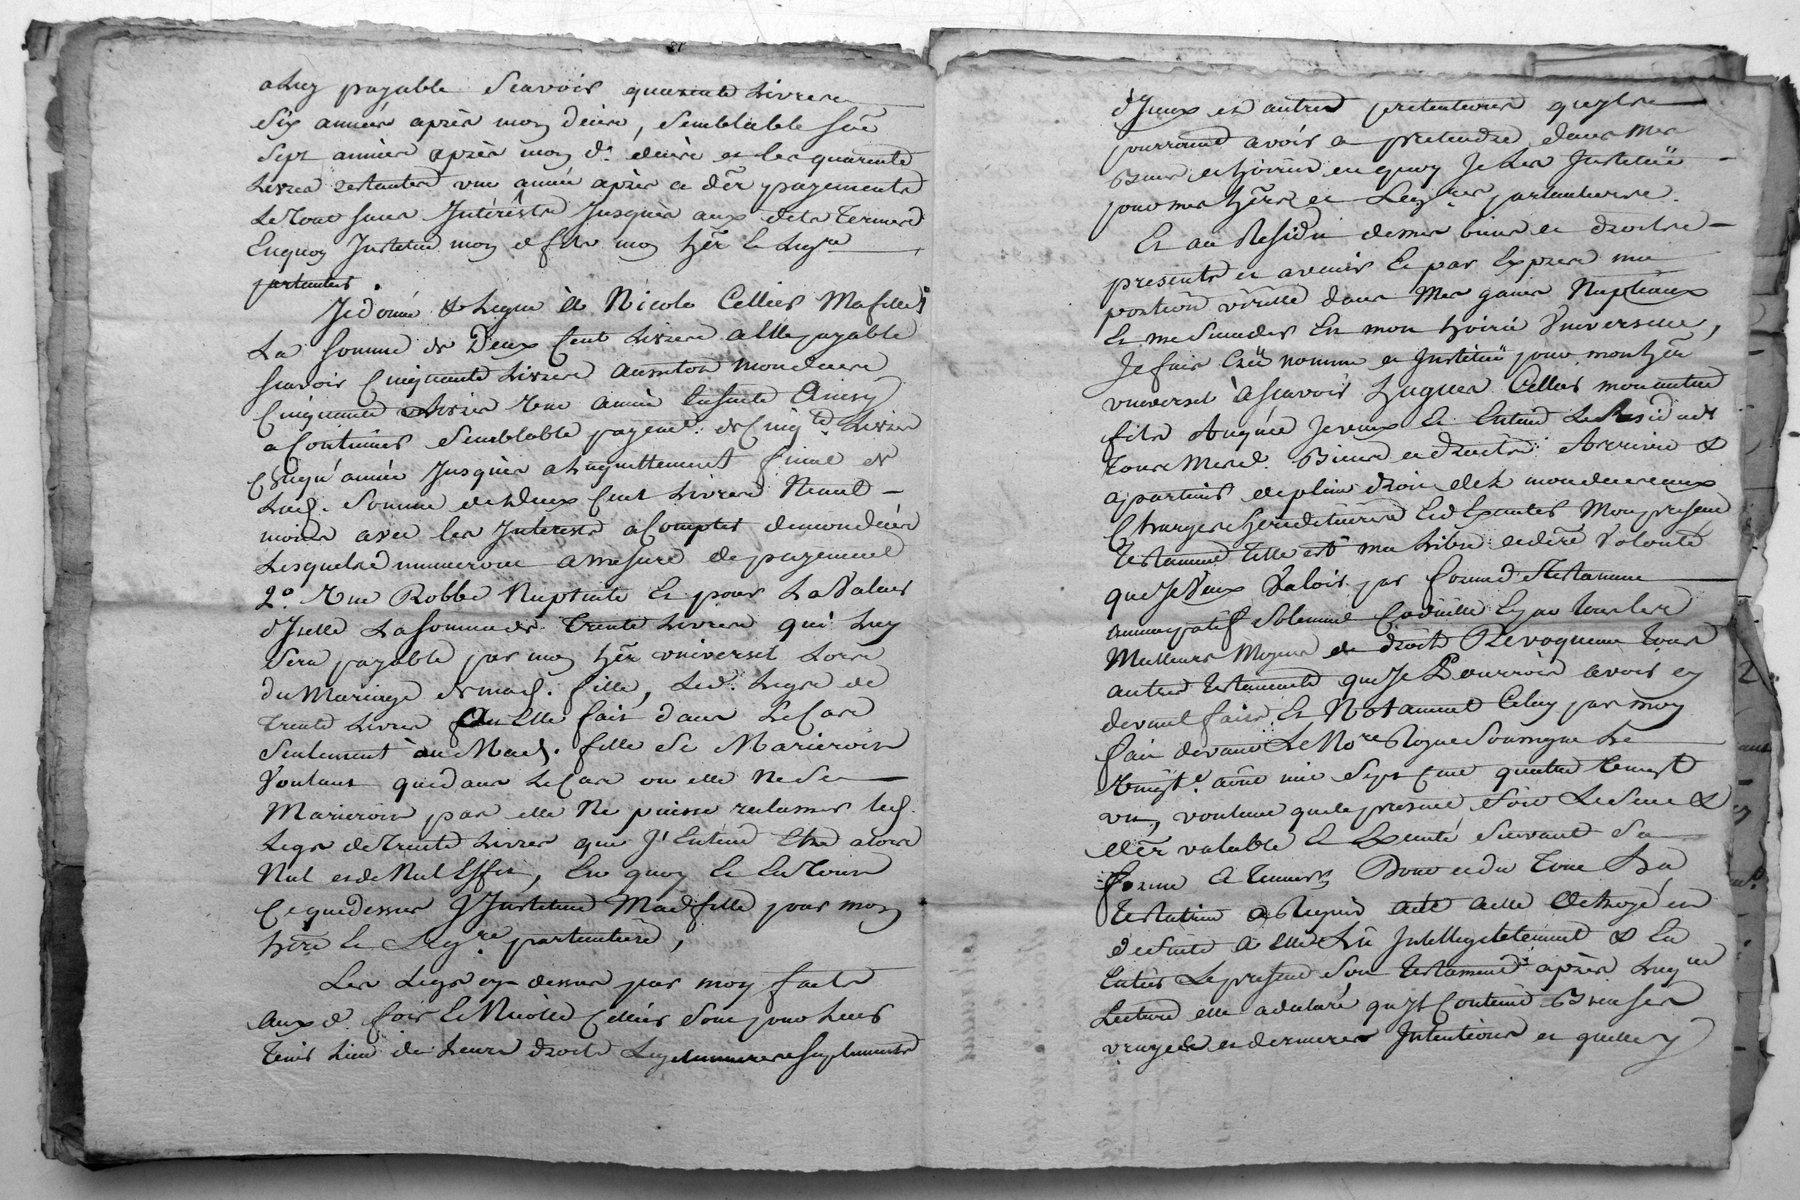 a luy payable Scavoir quarente Livres
Six années après moy décès, Semblable
Sept années après moy d. décès et les quarente
Livres restantes une année après ce dër payements
Le Tout sans Intérêsts Jusques aux dits Termes
Enquoy Institue moy d fils moy hër &
particulier.
Je donne & Legue à Nicole Cellier Ma fille
La Somme de Deux Cent Livres a Elle payable
Scavoir Cinquante Livres
Cinquante Livres Une année Ensuite Ainsy
a Continuer Semblable payemt. de Cinqte. Livres
Chaqu'année Jusques a L'aquittement final de
Lad. Somme de deux Cent Livres Neant-
moins avec les Interests a Compter de mon décès
Lesquels a mesure de payement
2º. Une Robbe Nuptiale Et pour La Valeur
d'Icelle La Somme de Trente Livres qui Luy
Sera payable par moy hër universel Lors
du Mariage de mad. fille, Led. Legs de
trente Livres fait dans Le Cas
Seulement où Mad. fille Se Marieroit
Voulant que dans Le Cas ou elle Ne Se
Marieroit pas elle Ne puisse reclamer led.
Legs de trente Livres que J'Entend Etre alors
Nul et de Nul Effet, En quoy Et En Tout
Ce que dessus J'Institue Mad fille pour moy
hëre & particuliere,
Les Legs cy dessus par moy faits
Aux d. fois & Nicole Cellier Sont pour Leur
Tenir Lieu de Leurs droits Suplements
d'Iceux et autres pretentions qu'ils
pourroient avoir a pretendre dans Mes
Biens et hoirie en quoy Je Les Institüe
pour mes hërs et particuliers.
Et au Residu de mes biens et droits
presents et avenir Et par Exprès ma
portion virille dans Mes gains Nuptiaux
Et me Succeder En mon hoirie Universelle,
Je fais Créé nomme et Institüe pour mon hër
universel à Scavoir Hugues Cellier mon autre
fils Auquel Je veux Et Entend Le Residu de
Tous Mesd. Biens et droits Arriver &
apartenir de plein droit dez mon décès aux
Charges héréditaires Et d'Executer Mon present
Testament Telle est ma Libre et dëre Volonté
que Je Veux Valoir par forme de Testament
nuncupatif Solemnel Codicille Et par tous les
Meilleurs Moyens de droit Revoquant Tous
autres testaments que Je Pourrois avoir cy
devant fait Et Notament Celuy par moy
fait devant Le Nore Royal Soussigné Le
aout mil Sept Cent quatre Vingt
un, voulant que le present Soit Le Seul &
dër valable Et Executé Suivant Sa
forme & Teneur, Dont et du Tout La
Testatrice a Requis acte a elle octroyé et
de Suite a elle Lû Intelligiblement & En
Entier Le present Son Testament après Laquelle
Lecture elle a declaré qu'il Contient Bien Ses
vrayes et dernieres Intentions et qu'elle y